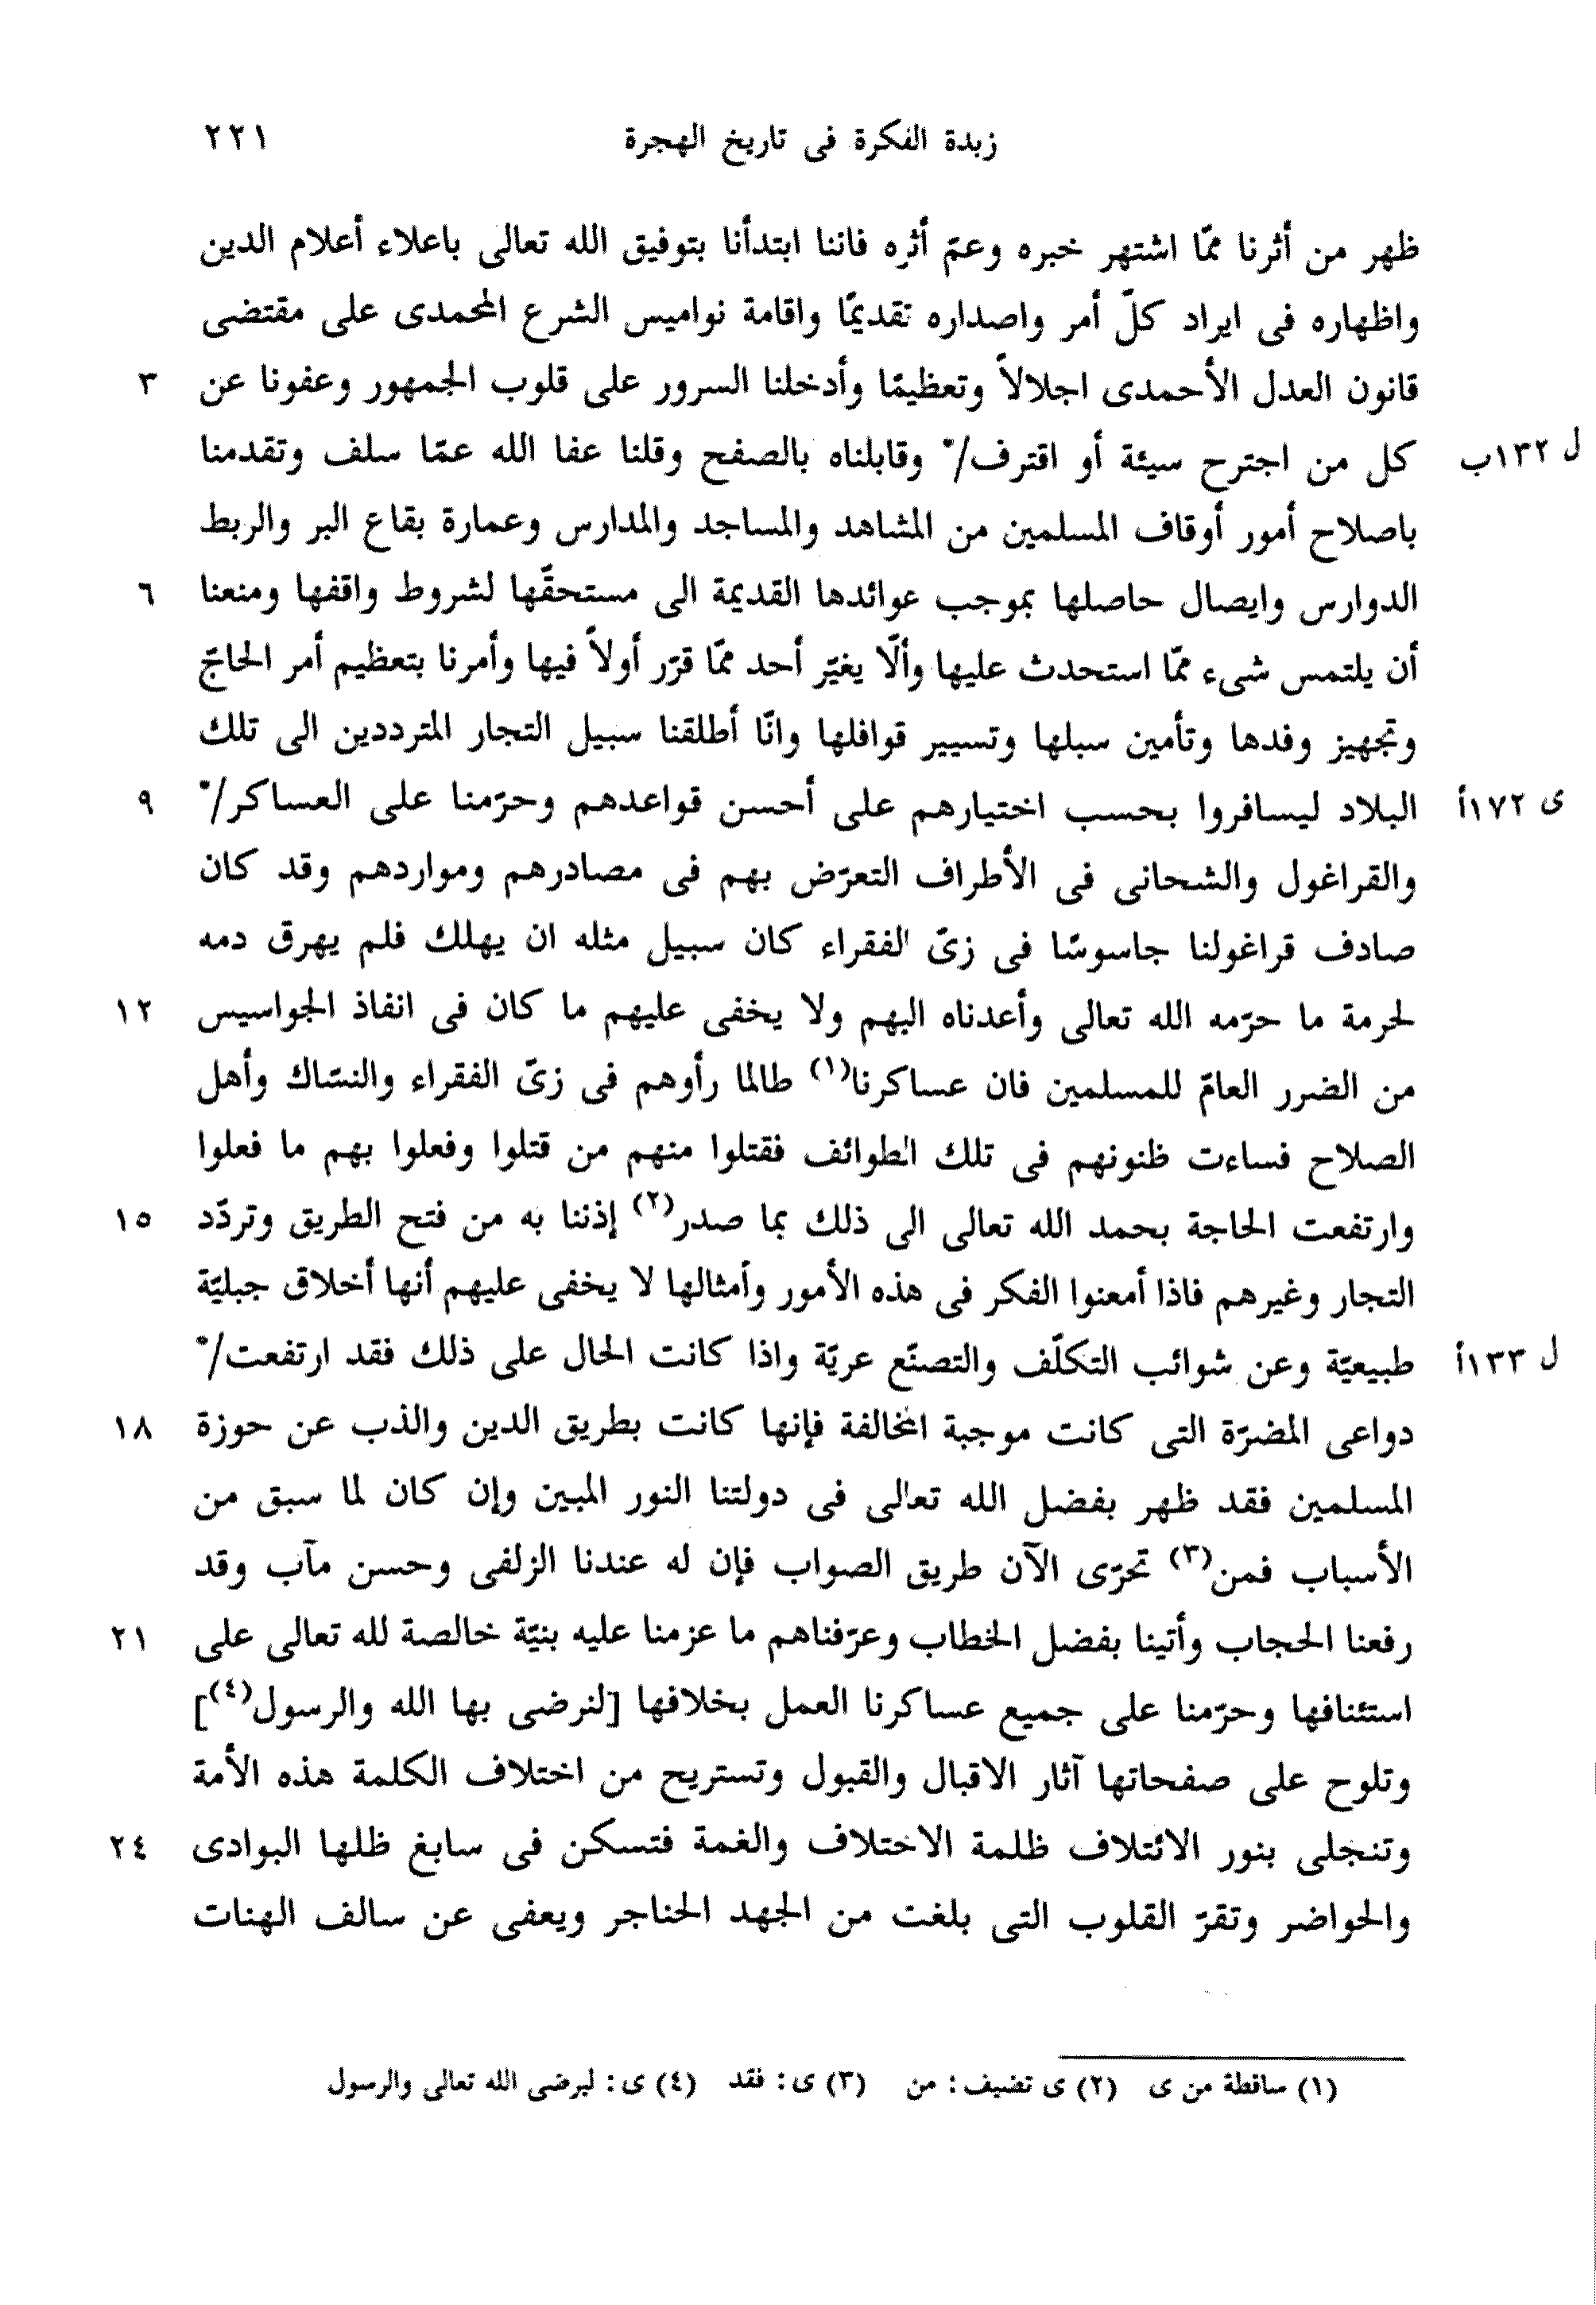 زبدة الفكرة فى تاريخ الهجرة ٢٢١
ظهر من أثرنا ممّا اشتهر خبره وعمّ أثره فاننا ابتدأنا بتوفيق الله تعالى باعلاء أعلام الدين
واظهاره فى ايراد كلّ أمر واصداره تقديمًا واقامة نواميس الشرع المحمدى على مقتضى
قانون العدل الأحمدى اجلالاً وتعظيمًا وأدخلنا السرور على قلوب الجمهور وعفونا عن ٣
ل ١٣٢ب كل من اجترح سيئة أو اقترف/* وقابلناه بالصفح وقلنا عفا الله عمّا سلف وتقدمنا
باصلاح أمور أوقاف المسلمين من المشاهد والمساجد والمدارس وعمارة بقاع البر والربط
الدوارس وايصال حاصلها بموجب عوائدها القديمة الى مستحقّها لشروط واقفها ومنعنا ٦
أن يلتمس شىء ممّا استحدث عليها وألّا يغيّر أحد ممّا قرّر أولاً فيها وأمرنا بتعظيم أمر الحاجّ
وتجهيز وفدها وتأمين سبلها وتسيير قوافلها وانّا أطلقنا سبيل التجار المترددين الى تلك
ى ١٧٢أ البلاد ليسافروا بحسب اختيارهم على أحسن قواعدهم وحرّمنا على العساكر/* ٩
والقراغول والشحانى فى الأطراف التعرّض بهم فى مصادرهم ومواردهم وقد كان
صادف قراغولنا جاسوسًا فى زىّ الفقراء كان سبيل مثله ان يهلك فلم يهرق دمه
لحرمة ما حرّمه الله تعالى وأعدناه اليهم ولا يخفى عليهم ما كان فى انفاذ الجواسيس ١٢
من الضرر العامّ للمسلمين فان عساكرنا(١) طالما رأوهم فى زىّ الفقراء والنسّاك وأهل
الصلاح فساءت ظنونهم فى تلك الطوائف فقتلوا منهم من قتلوا وفعلوا بهم ما فعلوا
وارتفعت الحاجة بحمد الله تعالى الى ذلك بما صدر(٢) إذننا به من فتح الطريق وتردّد ١٥
التجار وغيرهم فاذا أمعنوا الفكر فى هذه الأمور وأمثالها لا يخفى عليهم أنها أخلاق جبليّة
ل ١٣٣أ طبيعيّة وعن شوائب التكلّف والتصنّع عريّة واذا كانت الحال على ذلك فقد ارتفعت/*
دواعى المضرّة التى كانت موجبة المخالفة فإنها كانت بطريق الدين والذب عن حوزة ١٨
المسلمين فقد ظهر بفضل الله تعالى فى دولتنا النور المبين وإن كان لما سبق من
الأسباب فمن(٣) تحرّى الآن طريق الصواب فإن له عندنا الزلفى وحسن مآب وقد
رفعنا الحجاب وأتينا بفضل الخطاب وعرّفناهم ما عزمنا عليه بنيّة خالصة لله تعالى على ٢١
استئنافها وحرّمنا على جميع عساكرنا العمل بخلافها [لنرضى بها الله والرسول(٤)]
وتلوح على صفحاتها آثار الاقبال والقبول وتستريح من اختلاف الكلمة هذه الأمة
وتنجلى بنور الائتلاف ظلمة الاختلاف والغمة فتسكن فى سابغ ظلها البوادى ٢٤
والحواضر وتقرّ القلوب التى بلغت من الجهد الحناجر ويعفى عن سالف الهنات
(١) ساقطة من ى (٢) ى تضيف: من (٣) ى: فقد (٤) ى: ليرضى الله تعالى والرسول